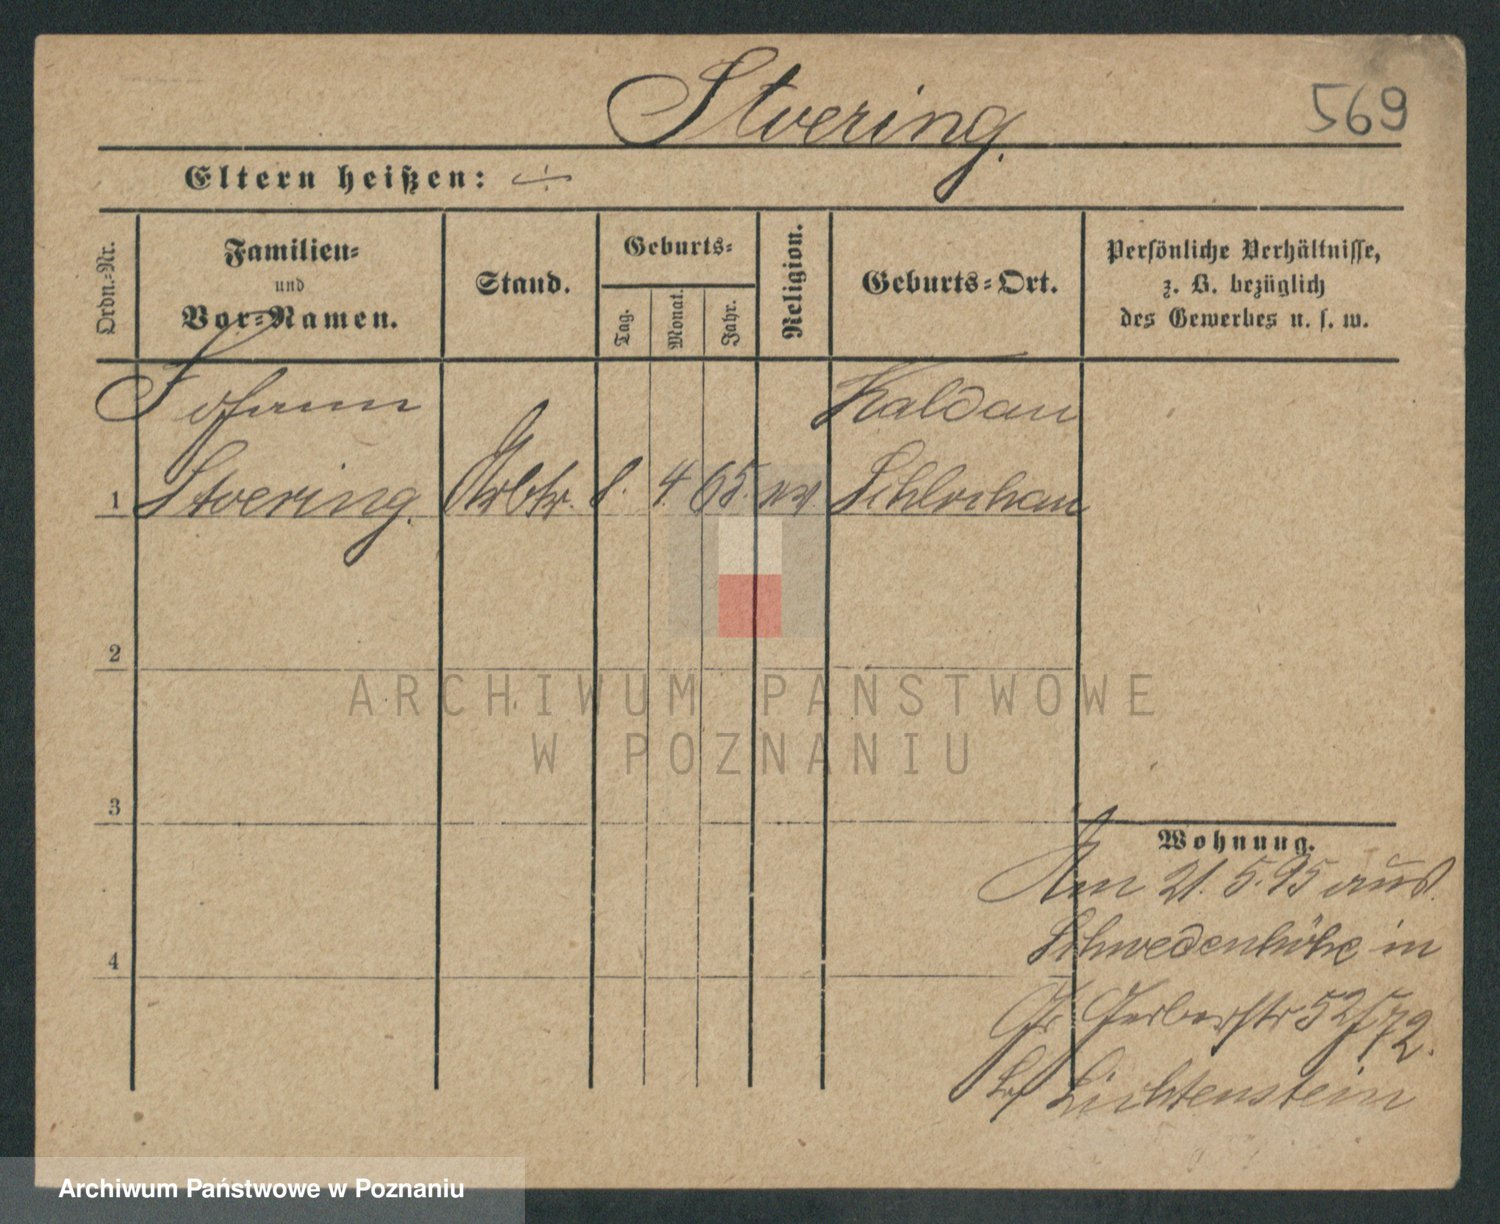 Stvering.
569
Eltern heißen: ÷
Ordn.-Nr.
Familien-
und
Vor-Namen.
Stand.
Geburts-
Tag.
Monat.
Jahr.
Religion.
Geburts-Ort.
Persönliche Verhältnisse,
z. B. bezüglich
des Gewerbes u. s. w.
Johann Kaldau
1 Stvering. Arbtr. 8. 4. 65. ev Schlochau
2
3
4
Wohnung.
Am 21. 5. 95 aus
Schwedenhöhe in
Gr Gerberstr 52/72.
Lichtenstein
ARCHIWUM PAŃSTWOWE
W POZNANIU
Archiwum Państwowe w Poznaniu